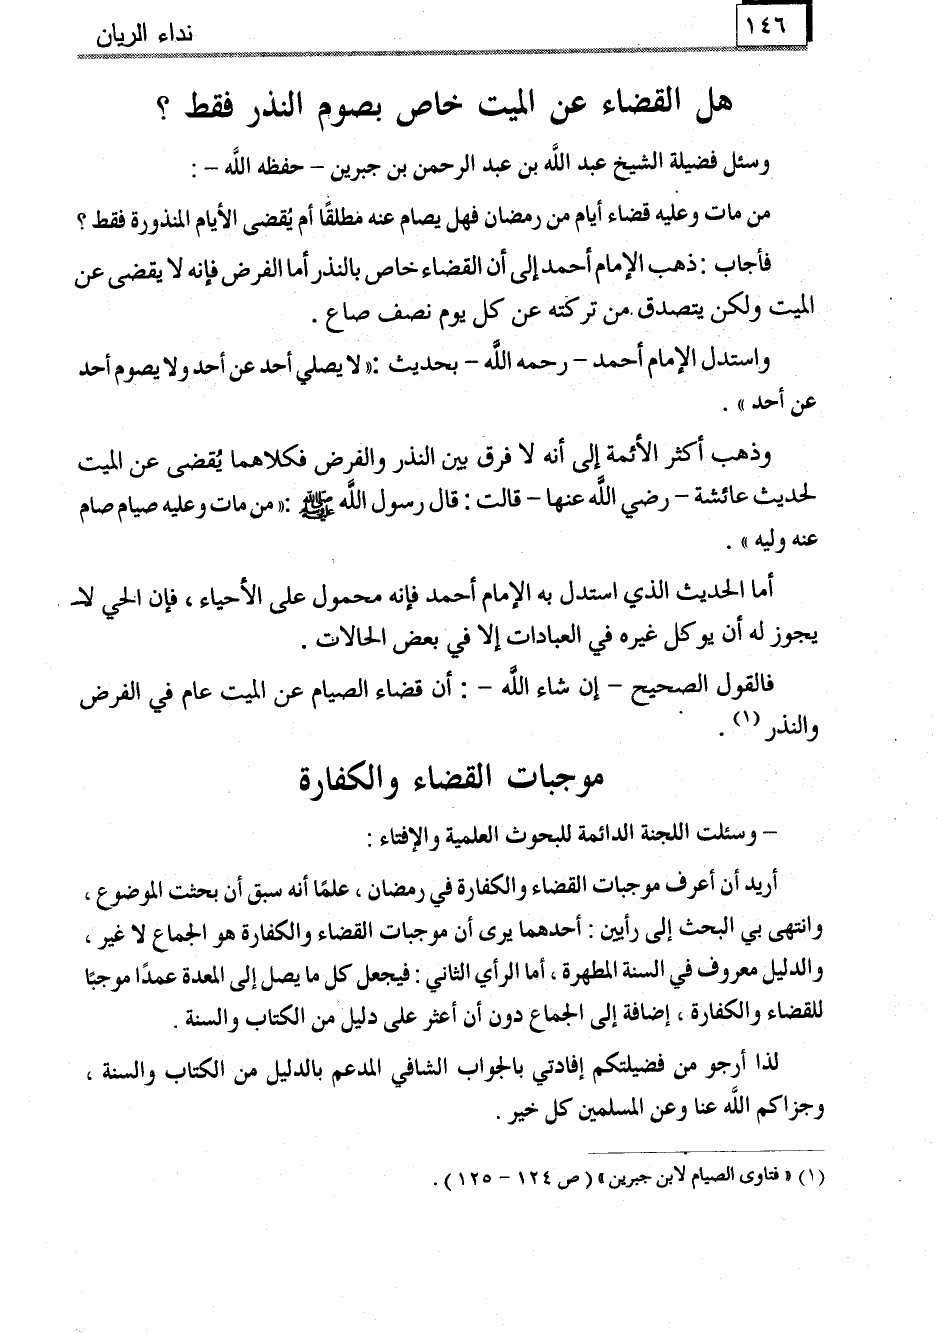 ١٤٦
نداء الريان
هل القضاء عن الميت خاص بصوم النذر فقط ؟
وسئل فضيلة الشيخ عبد اللَّه بن عبد الرحمن بن جبرين – حفظه اللَّه – :
من مات وعليه قضاء أيام من رمضان فهل يصام عنه مطلقًا أم يُقضى الأيام المنذورة فقط ؟
فأجاب : ذهب الإمام أحمد إلى أن القضاء خاص بالنذر أما الفرض فإنه لا يقضى عن
الميت ولكن يتصدق من تركته عن كل يوم نصف صاع .
واستدل الإمام أحمد – رحمه اللَّه – بحديث : « لا يصلي أحد عن أحد ولا يصوم أحد
عن أحد » .
وذهب أكثر الأئمة إلى أنه لا فرق بين النذر والفرض فكلاهما يُقضى عن الميت
لحديث عائشة – رضي اللَّه عنها – قالت : قال رسول اللَّه ﷺ : « من مات وعليه صيام صام
عنه وليه » .
أما الحديث الذي استدل به الإمام أحمد فإنه محمول على الأحياء ، فإن الحي لا
يجوز له أن يوكل غيره في العبادات إلا في بعض الحالات .
فالقول الصحيح – إن شاء اللَّه – : أن قضاء الصيام عن الميت عام في الفرض
والنذر (١) .
موجبات القضاء والكفارة
– وسئلت اللجنة الدائمة للبحوث العلمية والإفتاء :
أريد أن أعرف موجبات القضاء والكفارة في رمضان ، علمًا أنه سبق أن بحثت الموضوع ،
وانتهى بي البحث إلى رأيين : أحدهما يرى أن موجبات القضاء والكفارة هو الجماع لا غير ،
والدليل معروف في السنة المطهرة ، أما الرأي الثاني : فيجعل كل ما يصل إلى المعدة عمدًا موجبًا
للقضاء والكفارة ، إضافة إلى الجماع دون أن أعثر على دليل من الكتاب والسنة .
لذا أرجو من فضيلتكم إفادتي بالجواب الشافي المدعم بالدليل من الكتاب والسنة ،
وجزاكم اللَّه عنا وعن المسلمين كل خير .
(١) « فتاوى الصيام لابن جبرين » ( ص ١٢٤ – ١٢٥ ) .